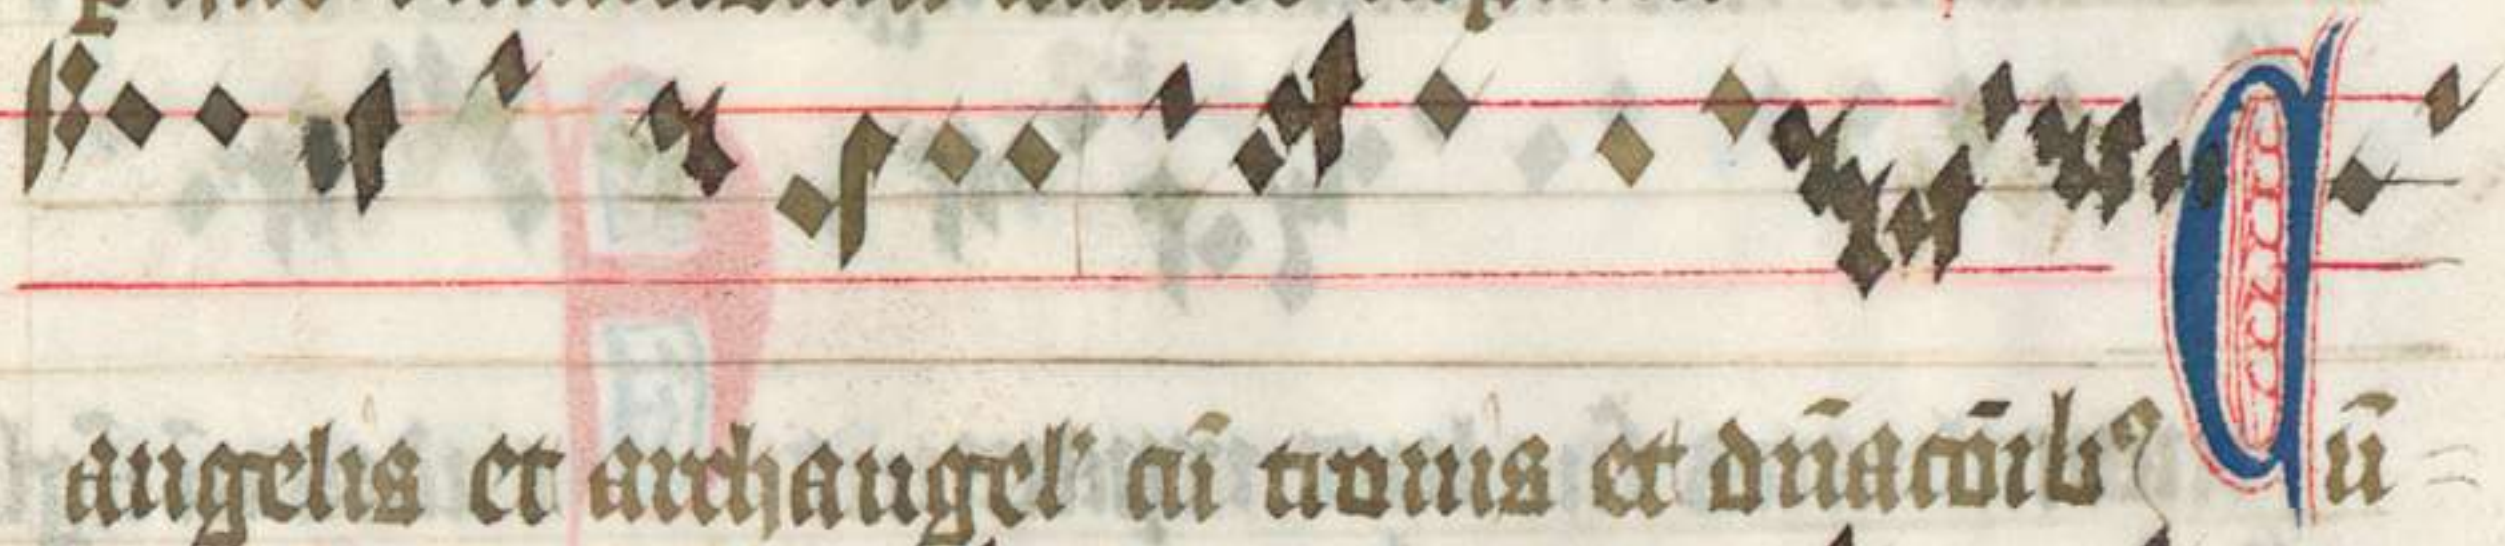 angelis et archangel' cū tronis et dn̄acōib⁹ Qū